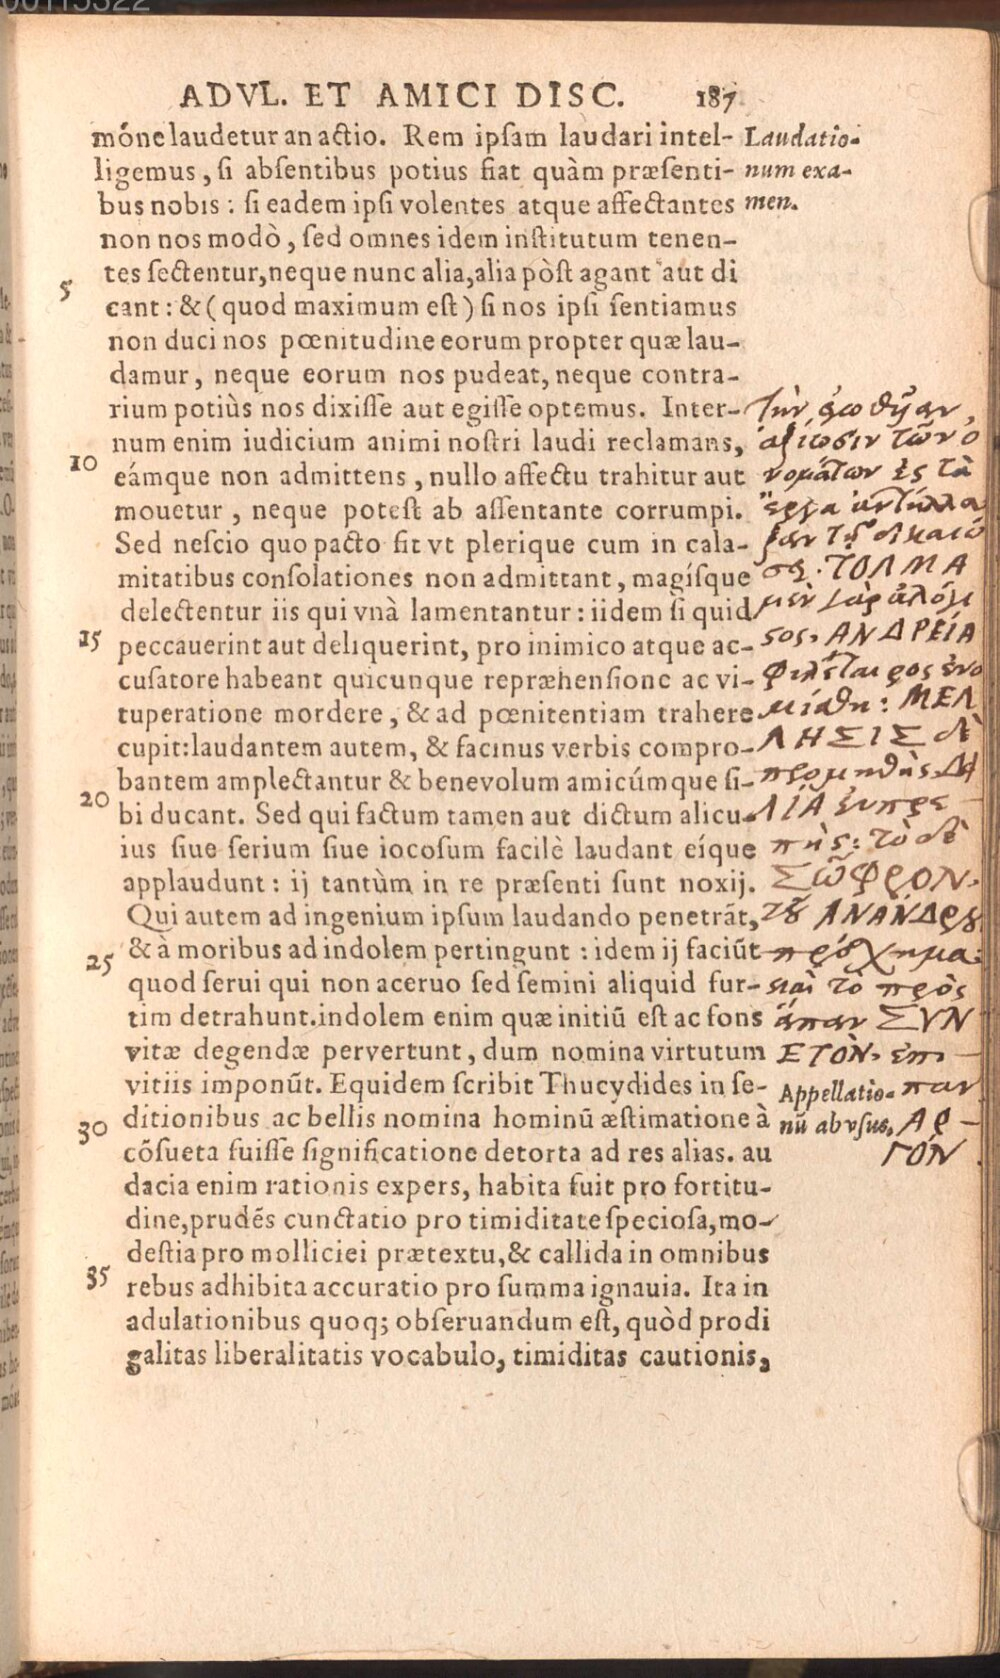 00115322
ADVL. ET AMICI DISC. 187
móne laudetur an actio. Rem ipſam laudari intel-
ligemus, ſi abſentibus potius fiat quàm præſenti-
bus nobis: ſi eadem ipſi volentes atque affectantes
non nos modò, ſed omnes idem inſtitutum tenen-
tes ſectentur, neque nunc alia, alia pòſt agant aut di
cant: & (quod maximum eſt) ſi nos ipſi ſentiamus
non duci nos pœnitudine eorum propter quæ lau-
damur, neque eorum nos pudeat, neque contra-
rium potiùs nos dixiſſe aut egiſſe optemus. Inter-
num enim iudicium animi noſtri laudi reclamans,
eámque non admittens, nullo affectu trahitur aut
mouetur, neque poteſt ab aſſentante corrumpi.
Sed neſcio quo pacto fit vt plerique cum in cala-
mitatibus conſolationes non admittant, magíſque
delectentur iis qui vnà lamentantur: iidem ſi quid
peccauerint aut deliquerint, pro inimico atque ac-
cuſatore habeant quicunque repræhenſione ac vi-
tuperatione mordere, & ad pœnitentiam trahere
cupit: laudantem autem, & facinus verbis compro-
bantem amplectantur & benevolum amicúmque ſi-
bi ducant. Sed qui factum tamen aut dictum alicu-
ius ſiue ſerium ſiue iocoſum facilè laudant eíque
applaudunt: ij tantùm in re præſenti ſunt noxij.
Qui autem ad ingenium ipſum laudando penetrãt,
& à moribus ad indolem pertingunt: idem ij faciũt
quod ſerui qui non aceruo ſed ſemini aliquid fur-
tim detrahunt. indolem enim quæ initiũ eſt ac fons
vitæ degendæ pervertunt, dum nomina virtutum
vitiis imponũt. Equidem ſcribit Thucydides in ſe-
ditionibus ac bellis nomina hominũ æſtimatione à
cõſueta fuiſſe ſignificatione detorta ad res alias. au
dacia enim rationis expers, habita fuit pro fortitu-
dine, prudẽs cunctatio pro timiditate ſpecioſa, mo-
deſtia pro molliciei prætextu, & callida in omnibus
rebus adhibita accuratio pro ſumma ignauia. Ita in
adulationibus quoq; obſeruandum eſt, quòd prodi
galitas liberalitatis vocabulo, timiditas cautionis,
5
10
15
20
25
30
35
Laudatio-
num exa-
men.
Τὴν εἰωθῆαν
ἀξίωσιν τῶν ὀ
νομάτων ἐς τὰ
ἔργα ἀντήλλα
ξαν τῇ δικαιώ
σει. ΤΟΛΜΑ
μὲν γὰρ ἀλόγι
σος, ΑΝΔΡΕΊΑ
φιλέταιρος ἐνο
μίσθη: ΜΕΛ
ΛΗΣΙΣ δὲ
προμηθὴς, ΔΗ
ΛΊΑ ἐυπρε
πής: τὸ δὲ
ΣῶΦΡΟΝ,
τȣ͂ ΑΝΆΝΔρȣ
πρόσχημα:
καὶ τὸ πρὸς
ἅπαν ΣΥΝ
ΕΤΌΝ, ἐπι
παν
ΑΡ
ΓΟΝ
Appellatio-
nũ abvſus.